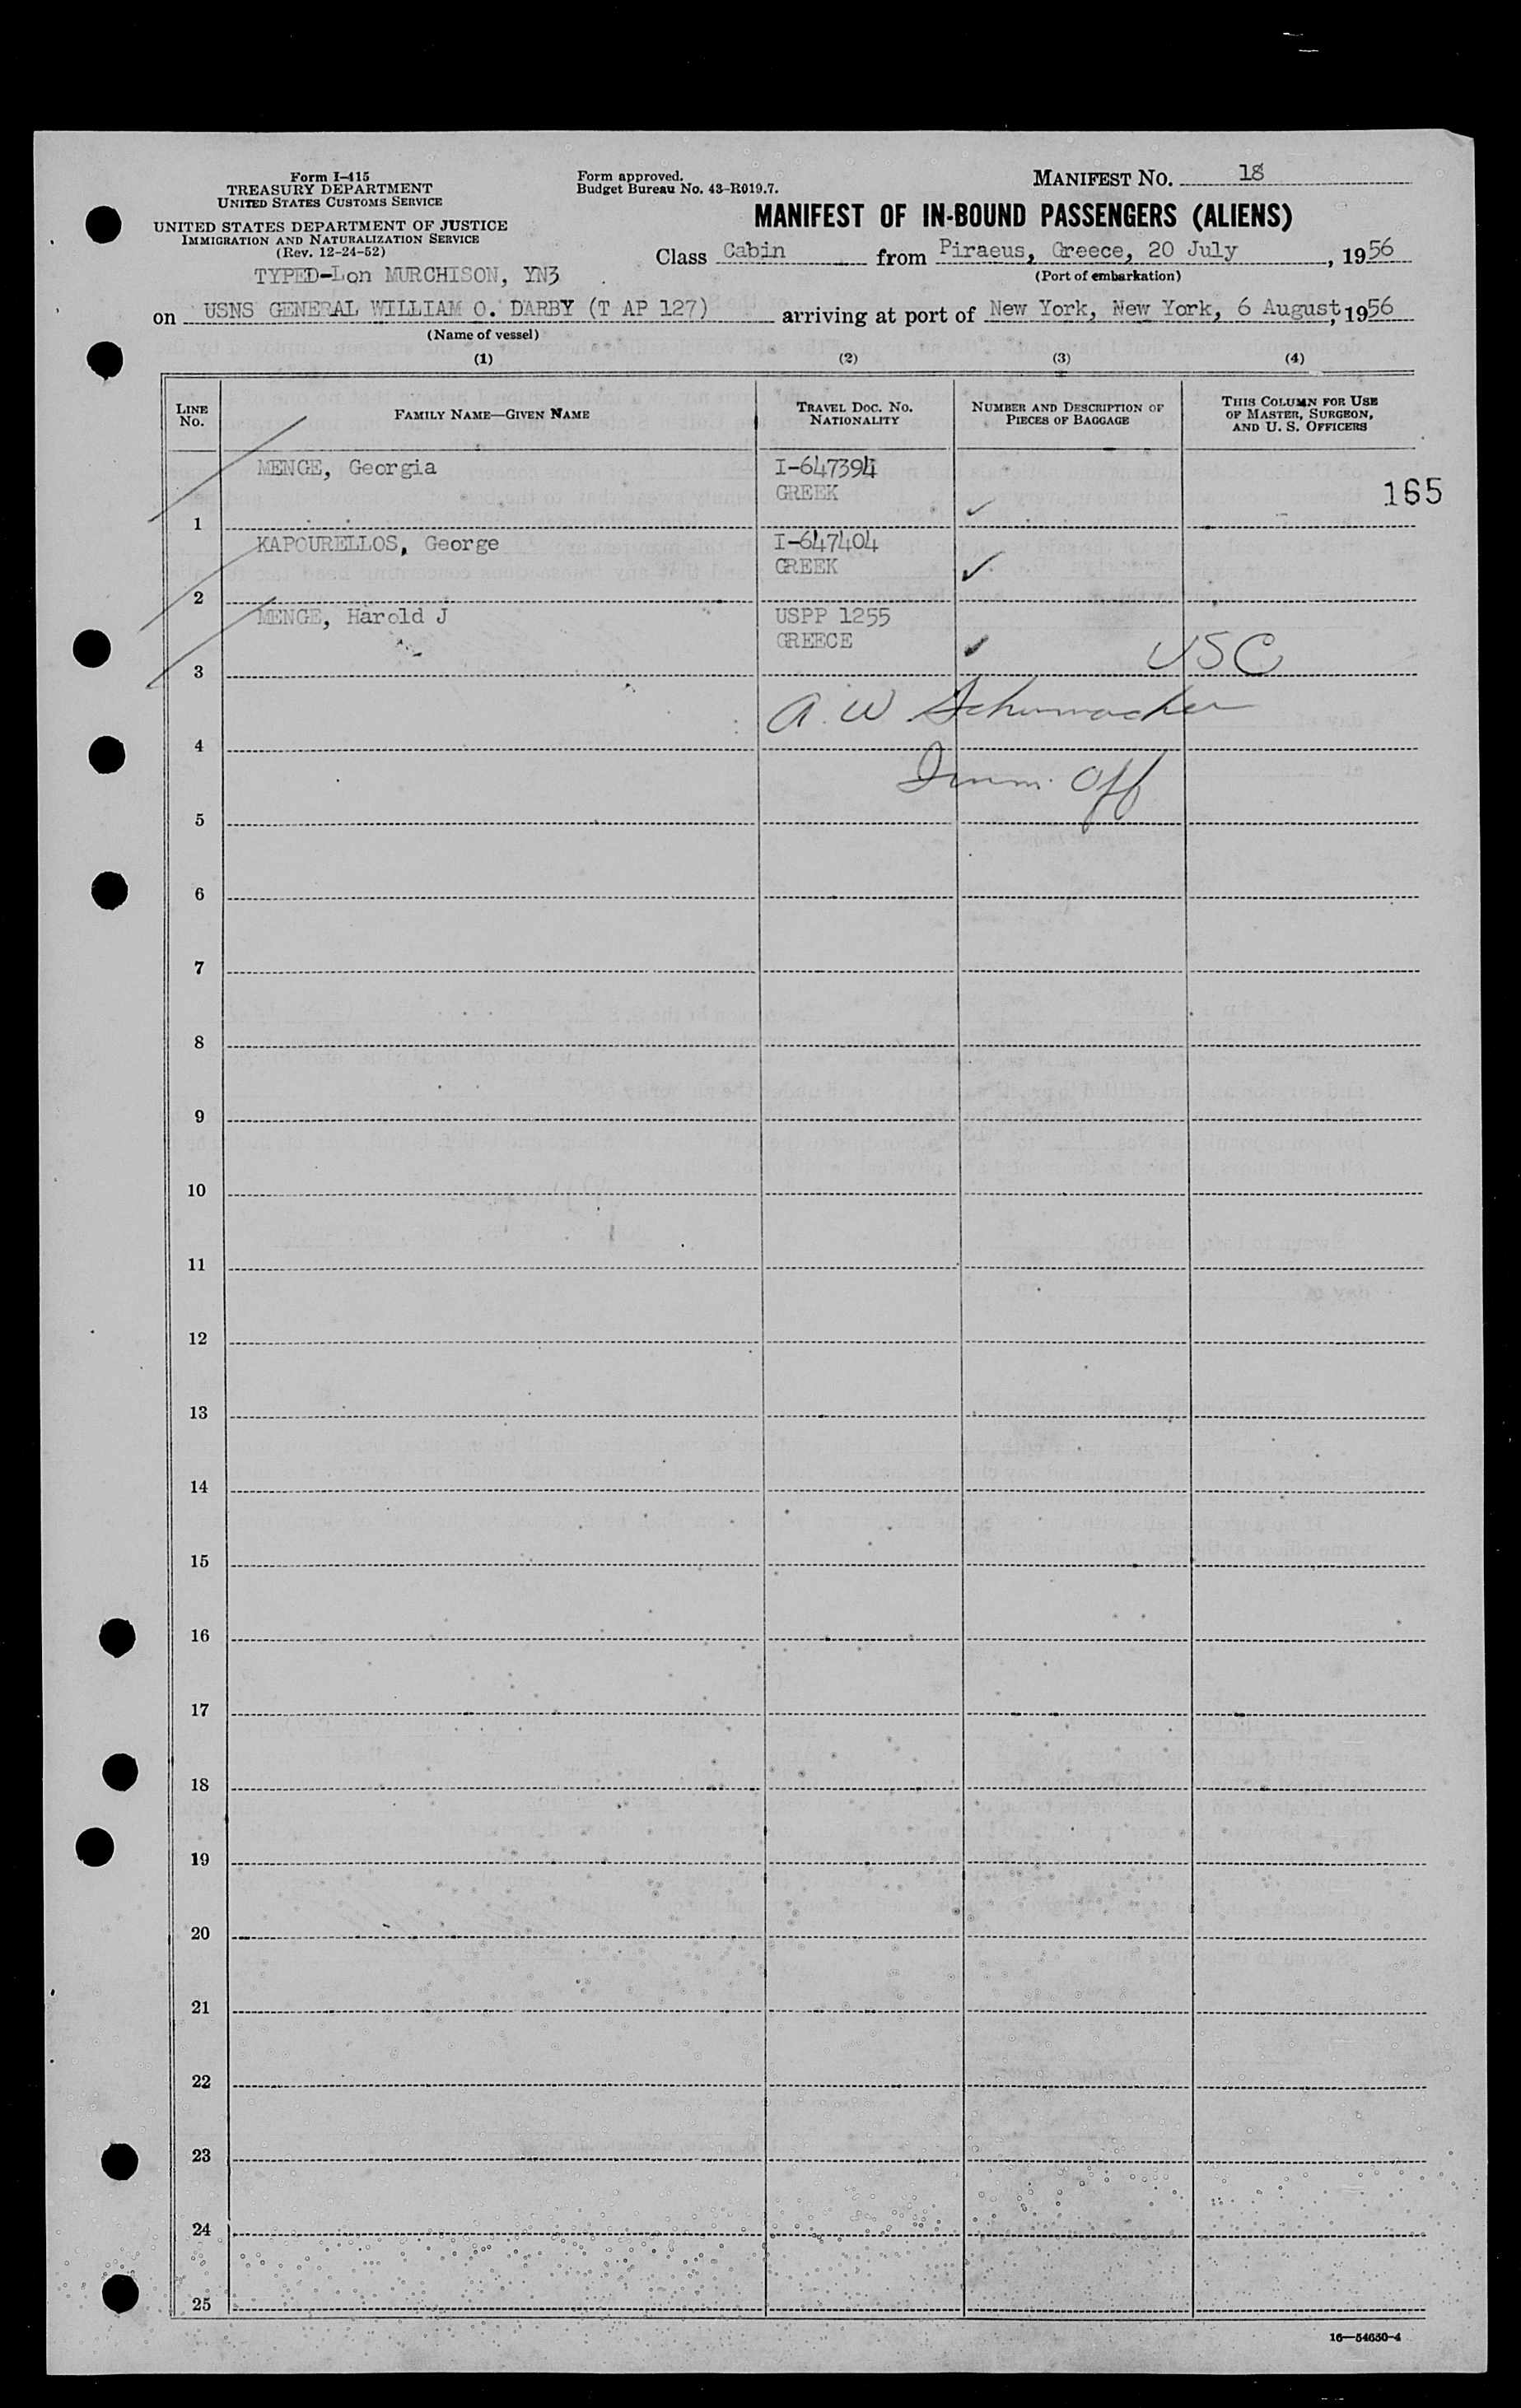 Form I-415
TREASURY DEPARTMENT
UNITED STATES CUSTOMS SERVICE
UNITED STATES DEPARTMENT OF JUSTICE
IMMIGRATION AND NATURALIZATION SERVICE
(Rev. 12-24-52)
TYPED-Lon MURCHISON, YN3
Form approved.
Budget Bureau No. 43-R019.7.
MANIFEST NO. 18
MANIFEST OF IN-BOUND PASSENGERS (ALIENS)
Class Cabin from Piraeus, Greece, 20 July, 1956
(Port of embarkation)
on USNS GENERAL WILLIAM O. DARBY (T AP 127) arriving at port of New York, New York, 6 August, 1956
(Name of vessel)
(1) (2) (3) (4)
LINE NO. FAMILY NAME—GIVEN NAME TRAVEL DOC. NO. NATIONALITY NUMBER AND DESCRIPTION OF PIECES OF BAGGAGE THIS COLUMN FOR USE OF MASTER, SURGEON, AND U. S. OFFICERS
MENGE, Georgia I-647394
GREEK ✓ 165
1
KAPOURELLOS, George I-647404
GREEK ✓
2
MENGE, Harold J USPP 1255
GREECE ✓ USC
3
A. W Schumacher
4
Imm. Off
5
6
7
8
9
10
11
12
13
14
15
16
17
18
19
20
21
22
23
24
25
16—54650-4